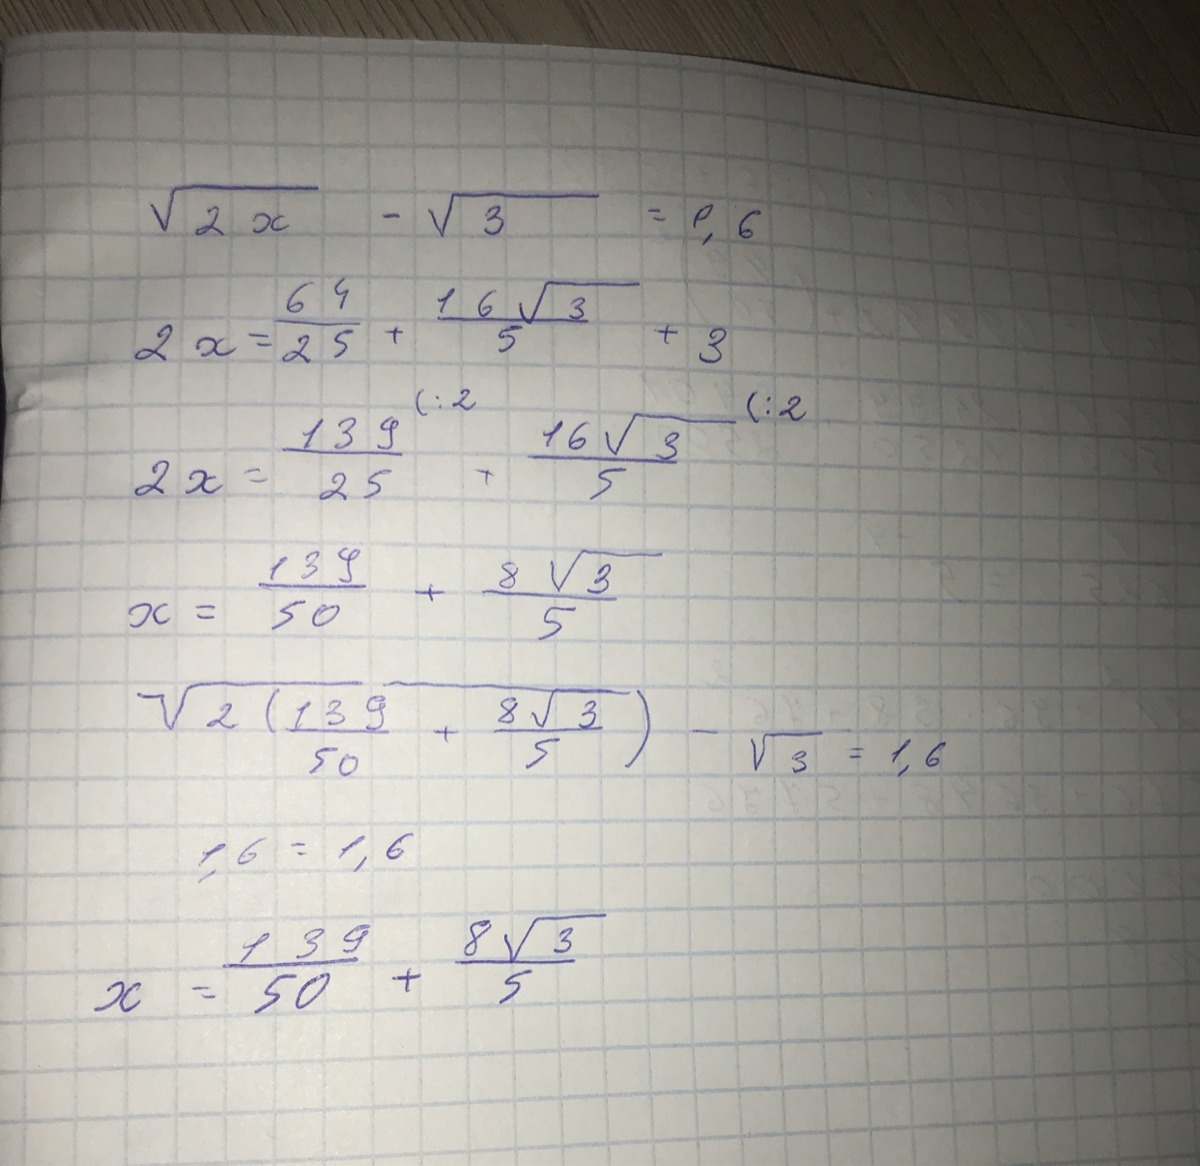 √2x - √3 = 1,6
2x = 64/25 + 16√3/5 + 3
2x = 139/25 (:2 + 16√3/5 (:2
x = 139/50 + 8√3/5
√2(139/50 + 8√3/5) - √3 = 1,6
1,6 = 1,6
x = 139/50 + 8√3/5